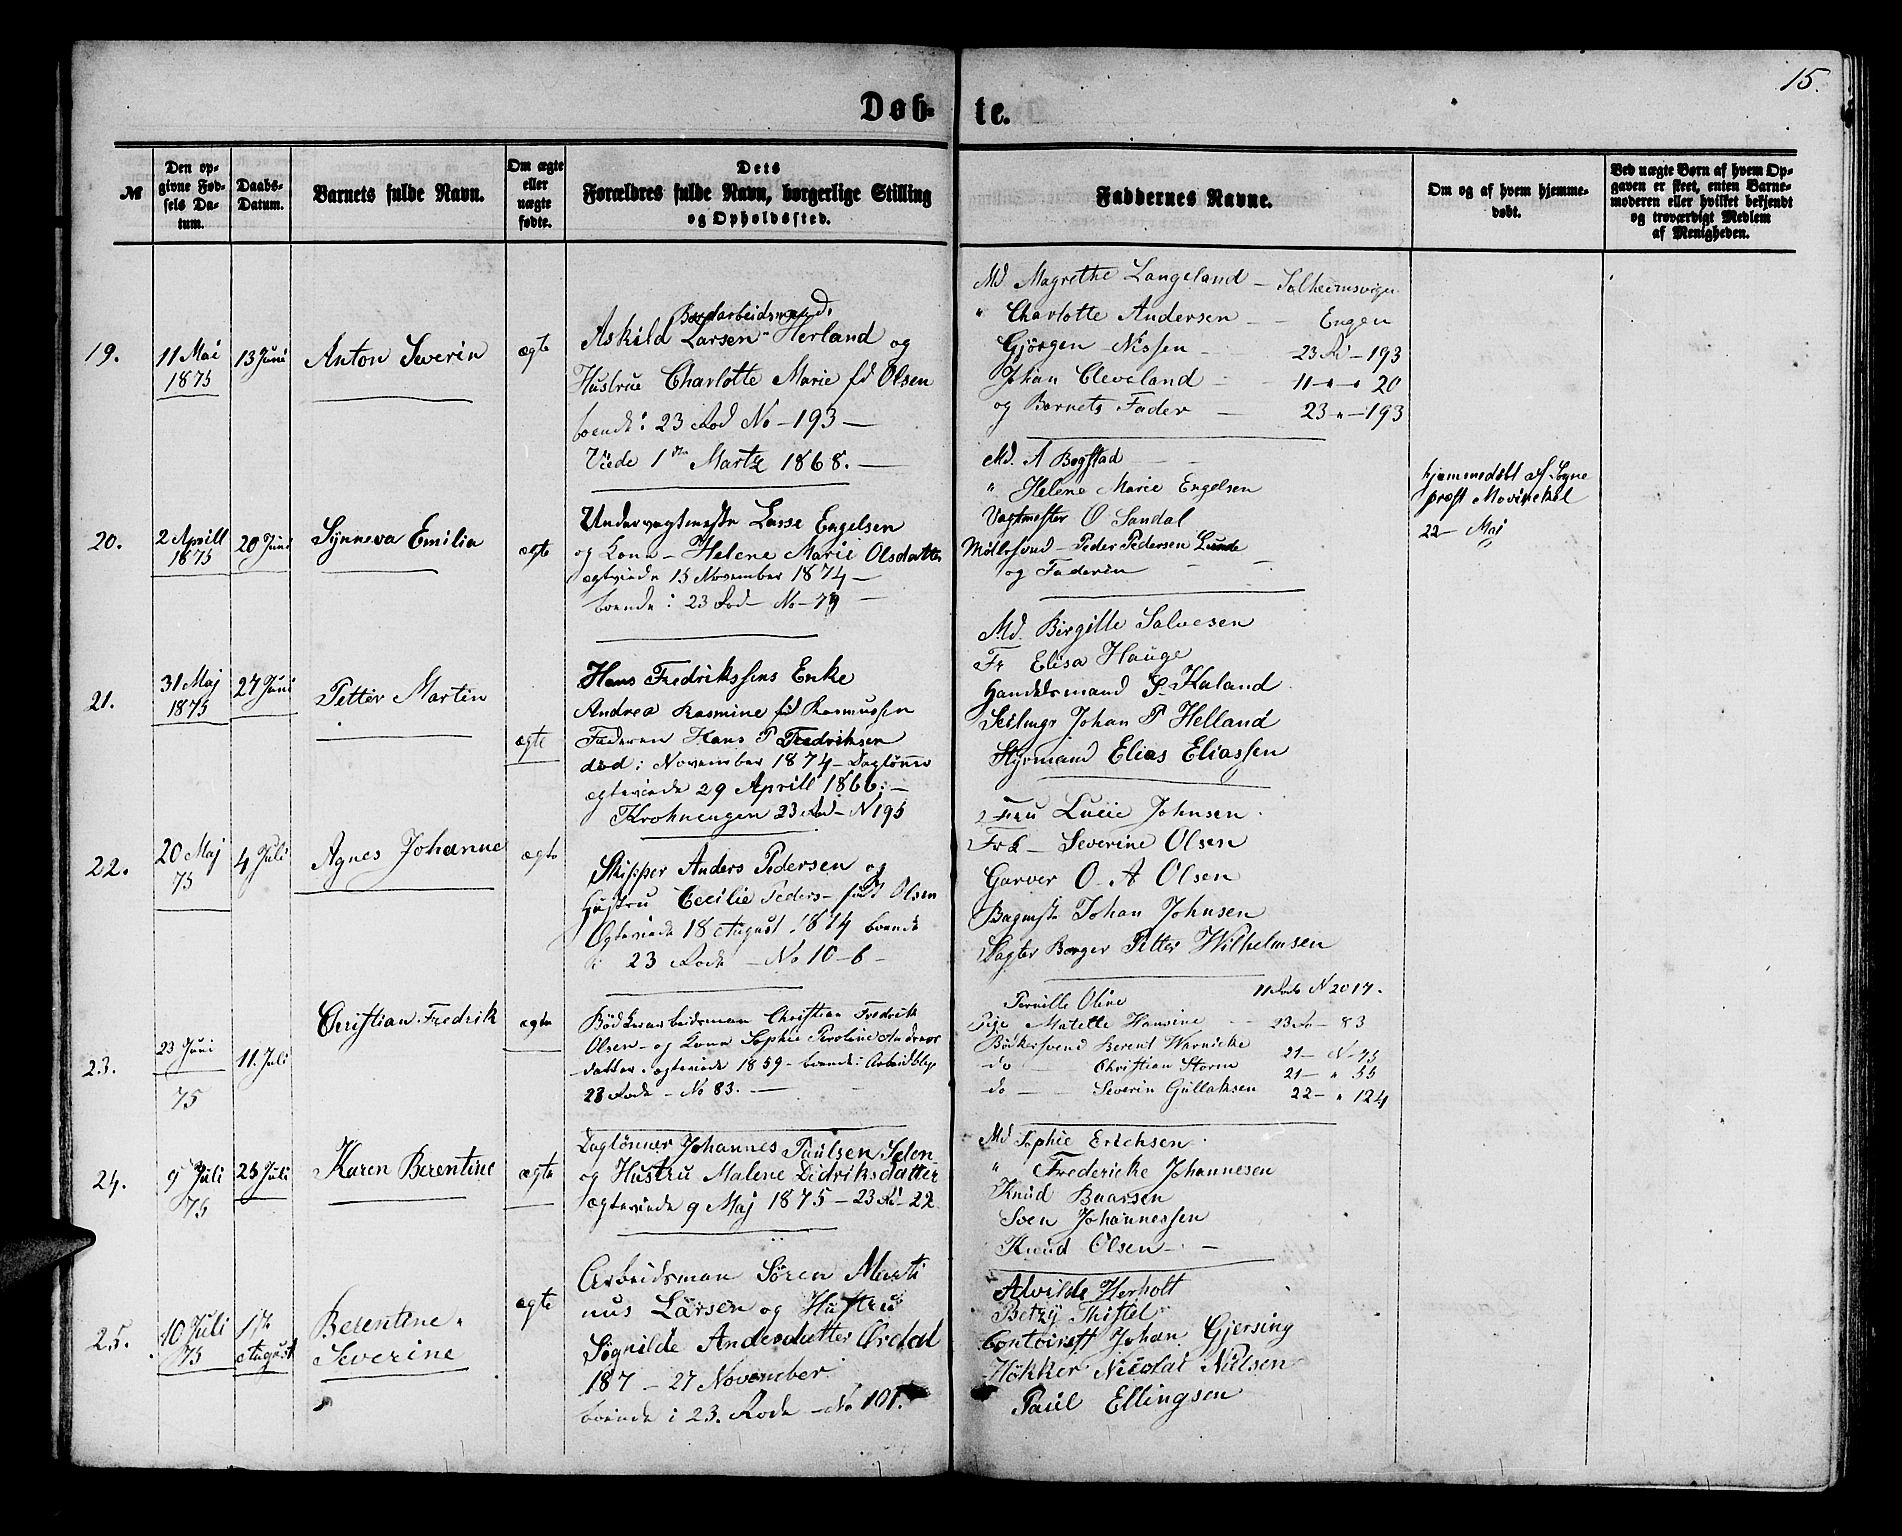 15.
Døb-te.
№
Den opgivne Fødsels Datum.
Daabs-Datum.
Barnets fulde Navn.
Om ægte eller uægte fødte.
Dets Forældres fulde Navn, borgerlige Stilling og Opholdssted.
Faddernes Navne.
Om og af hvem hjemmedøbt.
Ved uægte Børn af hvem Opgaven er skeet, enten Barnemoderen eller hvilket bekjendt og troværdigt Medlem af Menigheden.
19.
11 Mai
1875
13 Juni
Anton Severin
ægte
Askild Larsen Herland og
Hustrue Charlotte Marie fd Olsen
boende i 23 Rod No - 193 -
Viede 1ste Martz 1868. -
Md. Magrethe Langeland - Solheimsvigen
" Charlotte Andersen - Engen
Gjørgen Nissen - 23 Rd - 193
Johan Cleveland - 11 - " - " 20
og Barnets Fader - 23 " - 193
20.
2 Aprill
1875
20 Juni
Synneva Emilia
ægte
Undervagtmester Lasse Engelsen
og Kone - Helene Marie Olsdatter
ægteviede 15 November 1874 -
boende i 23 Rode No - 79 -
Md. A Bogstad
" Helene Marie Engelsen
Vagtmester O Sandal
Møllesvend - Peder Pedersen Lunde
og Faderen
hjemmedøbt af Sogne
præst Movinckel
22 - Mai
21.
31 Maj
1875
27 Juni
Petter Martin
ægte
Hans Fredrikssens Enke
Andrea Rasmine fd Rasmussen
Faderen Hans P Fredriksen
død i November 1874 - Dagløner
ægteviede 29 Aprill 1866. -
Krohnengen 23 Rod - N 195
Md. Birgitte Salvesen
Fr Elisa Hauge
Handelsmand S. Kaland
Seilmgr Johan P Helland
Styrmand Elias Eliassen
22.
20 Maj
75
4 Juli
Agnes Johanne
ægte
Skipper Anders Pedersen og
Hustru Cecilie Peders - født Olsen
Ægteviede 18 August 1874 boende
i 23 Rode - No 10 - b -
Fru Lucie Johnsen
Frk - Severine Olsen
Garver O. A Olsen
Bagmstr Johan Johnsen
Slagter Borger Petter Wilhelmsen
23.
23 Juni
75
11. Juli
Christian Fredrik
ægte
Bødkerarbeidsman Christian Fredrik
Olsen - og Kone Sophie Peroline Andreas
datter. ægteviede 1859 - boende i
23 Rode - No 83. -
Pernille Oline 11 Rode N 20 17.
Pige Matelle Hansine - 23 Ro - 83
Bødkersvend Berent Warnicke 21 - N - 75
do - Christian Storm 21 - " 55
do - Severin Gullaksen 22 - " 124
24.
9 Juli
75
25 Juli
Karen Berentine
ægte
Dagløner Johannes Paulsen Selen
og Hustru Malene Didriksdatter
ægteviede 9 Maj 1875 - 23 Rd - 22
Md Sophie Erichsen
" Fredericke Johannesen
Knud Baarsen
Sven Johannessen
Knud Olsen -
25.
10 Juli
75
17
August
Berentine
Severine
ægte
Arbeidsman Sören Marti
nus Larsen og Hustru
Søgnilde Andersdatter Ørdal
187 - 27 November
boende i 23. Rode - No 101.
Alvilde Herholt
Betzy Thistel
Contoirist Johan Gjersing
Høkker Nicolai Nielsen
Paul Ellingsen